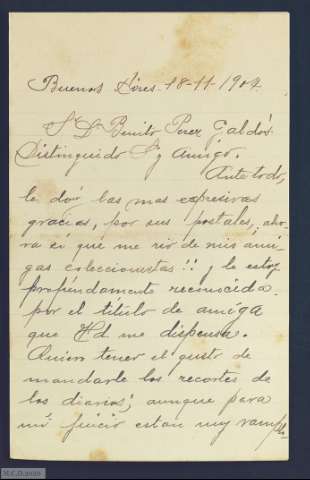 Buenos Aires 18-11-1904
Sr Dn Benito Perez Galdós
Distinguido Sr y amigo.
Ante todo,
le doy las mas expresivas
gracias, por sus postales, aho-
ra si que me rio de mis ami-
gas coleccionistas!! y le estoy
profundamente reconocida
por el título de amiga
que Ud me dispensa.
Quiero tener el gusto de
mandarle los recortes de
los diarios; aunque para
mi juicio estan muy